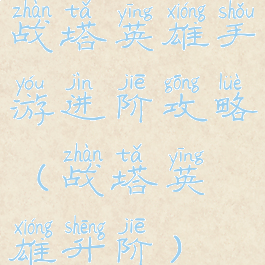 zhàn tǎ yīng xióng shǒu
战塔英雄手
yóu jìn jiē gōng lüè
游进阶攻略
zhàn tǎ yīng
（战塔英
xióng shēng jiē
雄升阶）